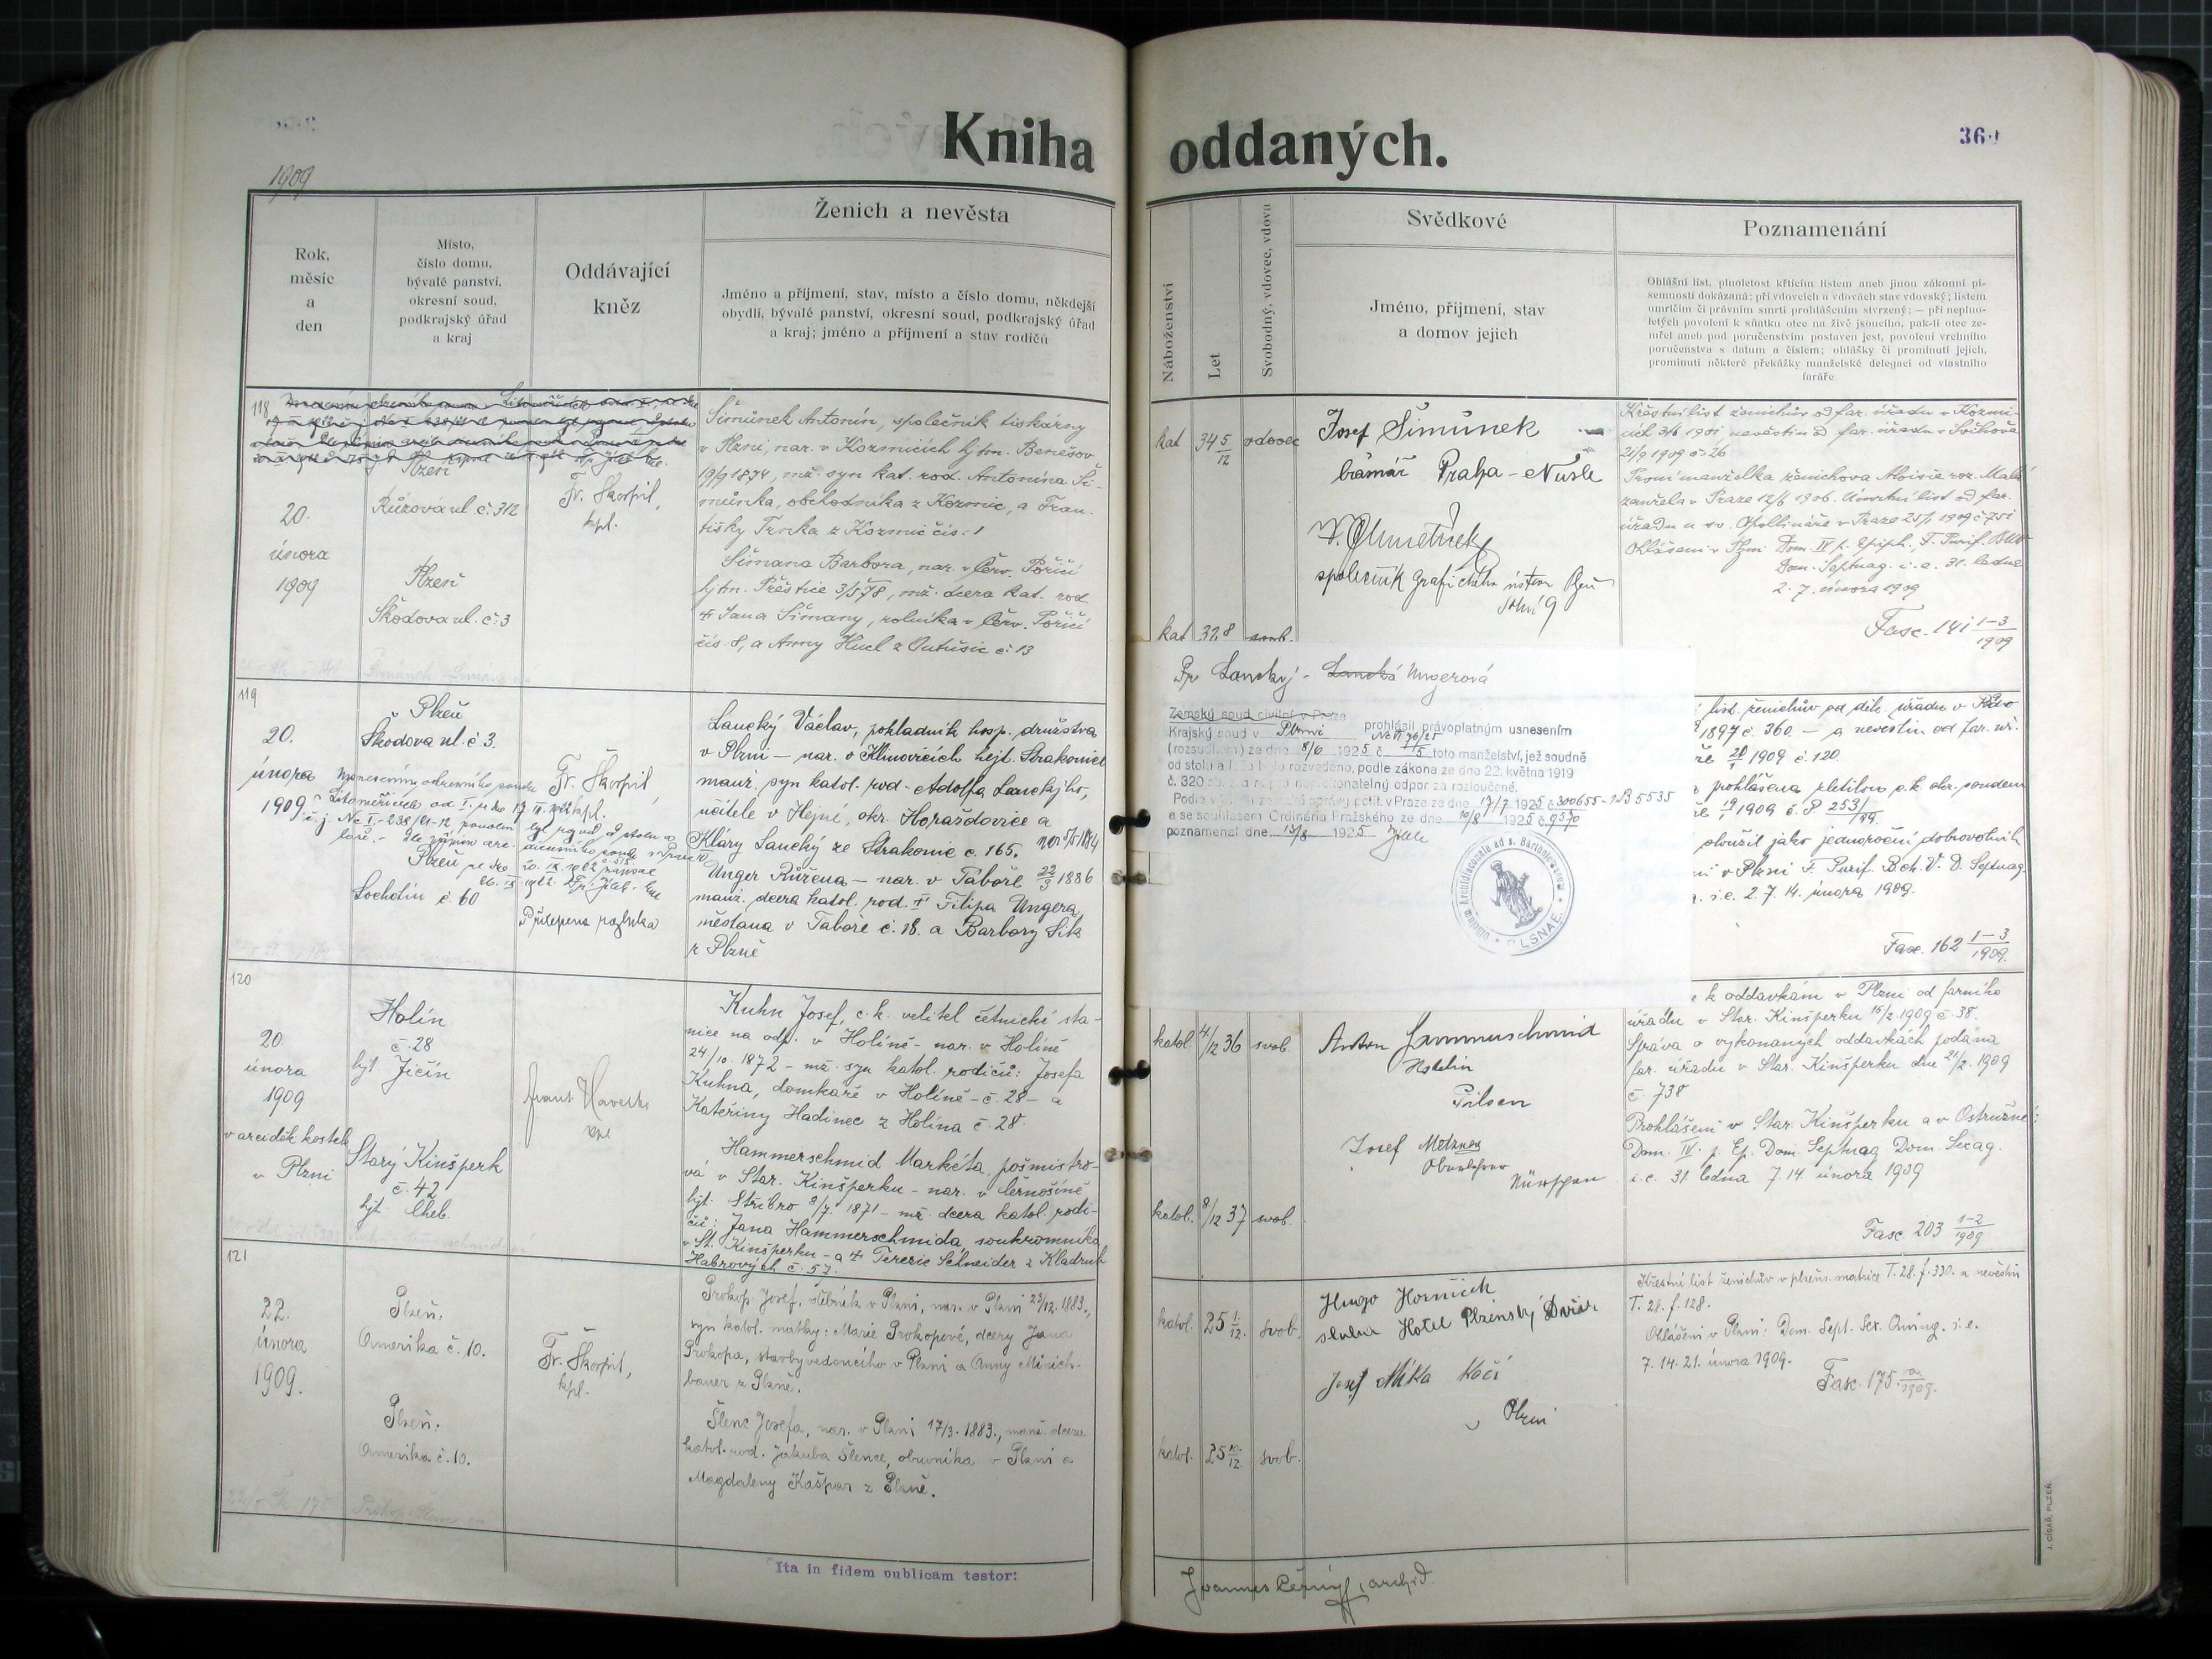 Kniha oddaných.
1909
Rok,
měsíc
a
den
Místo,
číslo domu,
bývalé panství,
okresní soud,
podkrajský úřad
a kraj
Oddávající
kněz
Ženich a nevěsta
Jméno a příjmení, stav, místo a číslo domu, někdejší
obydlí, bývalé panství, okresní soud, podkrajský úřad
a kraj; jméno a příjmení a stav rodičů
Náboženství
Let
Svobodný, vdovec, vdova
Svědkové
Jméno, příjmení, stav
a domov jejich
Poznamenání
Ohlášní list, plnoletost křticím listem aneb jinou zákonní pí-
semností dokázaná; při vdovcích a vdovách stav vdovský; listem
umrlčím či právním smrti prohlášením stvrzený; — při neplno-
letých povolení k sňatku otec na živě jsoucího, pak-li otec ze-
mřel aneb pod poručenstvím postaven jest, povolení vrchního
poručenstva s datum a číslem; ohlášky či prominutí jejich,
prominutí některé překážky manželské delegací od vlastního
faráře
118
20.
února
1909
Plzeň
Růžová ul. č. 312
Plzeň
Škodova ul. č. 3
Fr. Škorpil,
kpl.
Šimůnek Antonín, společník tiskárny
v Plzni, nar. v Kozmicích hjtm. Benešov
19/9 1874, mž. syn kat. rod. Antonína Ši-
můnka, obchodníka z Kozmic, a Fran-
tišky Trnka z Kozmic čís. 1
Šimana Barbora, nar. v Červ. Poříčí
hjtm. Přeštice 3/5 78, mž. dcera kat. rod.
Jana Šimany, rolníka v Červ. Poříčí
čís. 8, a Anny Hucl z Outušic č. 13
kat 34 5/12 vdovec
kat 32 8 svob.
Josef Šimůnek
Praha - Nusle
společník grafického ústavu Plzeň
Křestní list ženichův od far. úřadu v Kozmi-
cích 3/6 1901, nevěstin od far. úřadu v
21/9 1909 č. 26
První manželka ženichova Aloisie roz. Malá
zemřela v Praze 12/6 1906. Úmrtní list od far.
úřadu u sv. Apollináře v Praze 25/1 1909 č. 751
Ohlášeni v Plzni Dom. IV p. Epiph., F. Purif. BMV
Dom. Septuag. i. e. 31. ledna
2. 7. února 1909
Fasc. 141 1-3/1909
119
20.
února
1909
Plzeň
Škodova ul. č. 3.
Plzeň
Lochotín č. 60
Fr. Škorpil,
kpl.
Přilepena rozluka
Lancký Václav, pokladník hosp. družstva
v Plzni — nar. v Klinovicích hejt. Strakonice
manž. syn katol. rod. Adolfa Lanckýho,
učitele v Hejné, okr. Horažďovice a
Kláry Lancký ze Strakonic č. 165. nar. 5/5 1884
Unger Růžena — nar. v Táboře 22/3 1886
manž. dcera katol. rod. † Filipa Ungera,
měšťana v Táboře č. 18. a Barbory Sik
z Plzně
Pp. Lancký - Lancká Ungerová
Zemský soud civilní v Praze
Krajský soud v Plzni prohlásil právoplatným usnesením
(rozsudkem) ze dne 8/6 1925 č. toto manželství, jež soudně
od stolu a lože bylo rozvedeno, podle zákona ze dne 22. května 1919
č. 320 sb. z. a n. pro nepřekonatelný odpor za rozloučené.
Podle výnosu zemské správy polit. v Praze ze dne 17/7 1925 č. 300655
a se souhlasem Ordinariátu Pražského ze dne 10/8 1925 č. 9570
poznamenal dne 13/8 1925
list ženichův od děk. úřadu v
1897 č. 360. — a nevěstin od far. úř.
1909 č. 120.
prohlášena zletilou c. k. okr. soudem
1909 č. P 253/
sloužil jako jednoroční dobrovolník
v Plzni F. Purif. B. M. V. D. Septuag.
i. e. 2. 7. 14. února 1909.
Fasc. 162 1-3/1909.
120
20.
února
1909
v arciděk kostele
v Plzni
Holín
č. 28
hjt Jičín
Starý Kinšperk
č. 42
hjt. Cheb.
Kuhn Josef, c. k. velitel četnické sta-
nice na odp. v Holíně - nar. v Holíně
24/10 1872 - mž. syn katol. rodičů: Josefa
Kuhna, domkáře v Holíně - č. 28 - a
Kateřiny Hadinec z Holína č. 28.
Hammerschmid Markéta, pošmistro-
vá v Star. Kinšperku - nar. v Černošíně
hjt. Stříbro 8/7 1871 - mž. dcera katol. rodi-
čů: Jana Hammerschmida, soukromníka
v St. Kinšperku - a † Terezie Schneider z Kladrub
Habrových č. 57.
katol. 4/12 36 svob.
katol. 8/12 37 svob.
Anton Hammerschmid
Pilsen
Josef Metzner
Oberlehrer
Nürschan
k oddavkám v Plzni od farního
úřadu v Star. Kinšperku 16/2 1909 č. 38.
Zpráva o vykonaných oddavkách podána
far. úřadu v Star. Kinšperku dne 21/2. 1909
č. 738
Prohlášeni v Star. Kinšperku a v Ostružné:
Dom. IV. p. Ep. Dom. Septuag Dom. Sexag.
i. e. 31. ledna 7. 14. února 1909
Fasc. 203 1-2/1909
121
22.
února
1909.
Plzeň.
Amerika č. 10.
Plzeň.
Amerika č. 10.
Fr. Škorpil,
kpl.
Prokop Josef, dělník v Plzni, nar. v Plzni 23/12. 1883.,
syn katol. matky: Marie Prokopové, dcery Jana
Prokopa, stavbyvedoucího v Plzni a Anny Minich-
bauer z Plzně.
Šlenc Josefa, nar. v Plzni 17/3. 1883., manž. dcera
katol. rod. Jakuba Šlence, obuvníka v Plzni a
Magdaleny Kašpar z Plzně.
katol. 25 1/12. svob.
katol. 25 10/12. svob.
Hugo Horníček
sluha Hotel Plzeňský Dvůr
Josef Mika kočí
Plzni
Křestní list ženichův v plzeňs. matrice T. 28. f. 330. a nevěstin
T. 28. f. 128.
Ohlášeni v Plzni: Dom. Sept. Sex. Quinq. i. e.
7. 14. 21. února 1909.
Fasc. 175
Ita in fidem publicam testor:
Joannes Černý, archid.
J. CÍSAŘ, PLZEŇ